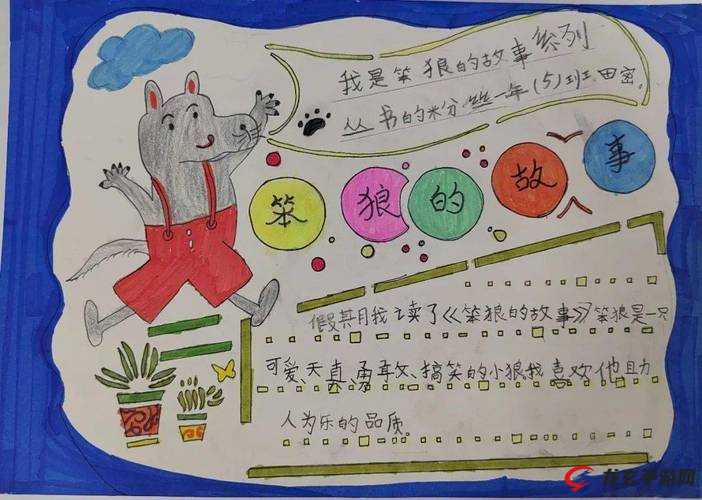 我是笨狼的故事系列
丛书的粉丝一年(5)班田密。
笨狼的故事
假其月我读了《笨狼的故事》笨狼是一只
可爱、天真、勇敢、搞笑的小狼我喜欢他助
人为乐的品质。